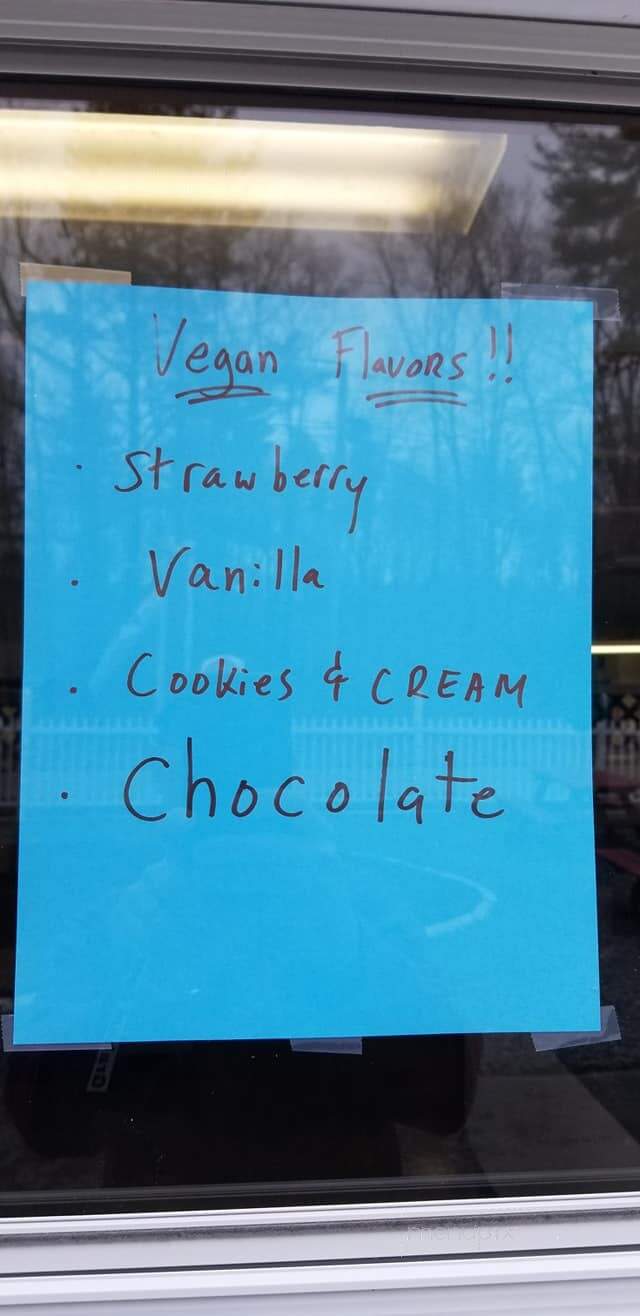 Vegan Flavors!!
· Strawberry
· Vanilla
· Cookies & CREAM
· Chocolate
menupix